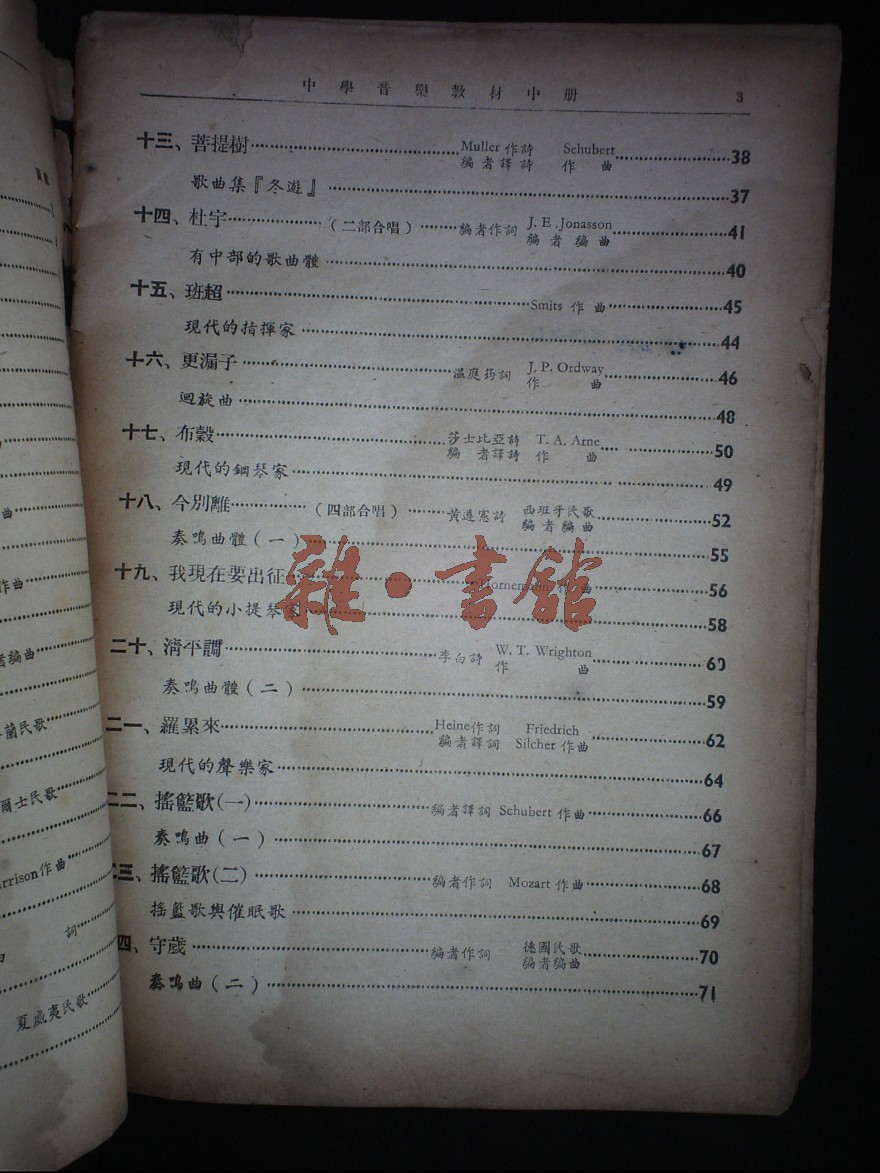 中學音樂教材中册 3
十三、菩提樹 Muller 作詩 Schubert 38
編者譯詩 作曲
歌曲集『冬遊』 37
十四、杜宇 (二部合唱) 編者作詞 J. E. Jonasson 41
編者編曲
有中部的歌曲體 40
十五、班超 Smits 作曲 45
現代的指揮家 44
十六、更漏子 溫庭筠詞 J. P. Ordway 46
作曲
迴旋曲 48
十七、布穀 莎士比亞詩 T. A. Arne 50
編者譯詩 作曲
現代的鋼琴家 49
十八、今別離 (四部合唱) 黃遵憲詩 西班牙民歌 52
編者編曲
奏鳴曲體(一) 55
十九、我現在要出征 Hornemann 作曲 56
現代的小提琴家 58
二十、清平調 李白詩 W. T. Wrighton 60
作曲
奏鳴曲體(二) 59
二一、羅累來 Heine作詞 Friedrich 62
編者譯詞 Silcher 作曲
現代的聲樂家 64
二二、搖籃歌(一) 編者譯詞 Schubert 作曲 66
奏鳴曲(一) 67
三、搖籃歌(二) 編者作詞 Mozart 作曲 68
搖籃歌與催眠歌 69
四、守歲 編者作詞 德國民歌 70
編者編曲
奏鳴曲(二) 71
雜·書館
曲
作曲
者編曲
蘭民歌
爾士民歌
rrison作曲
詞
夏威夷民歌